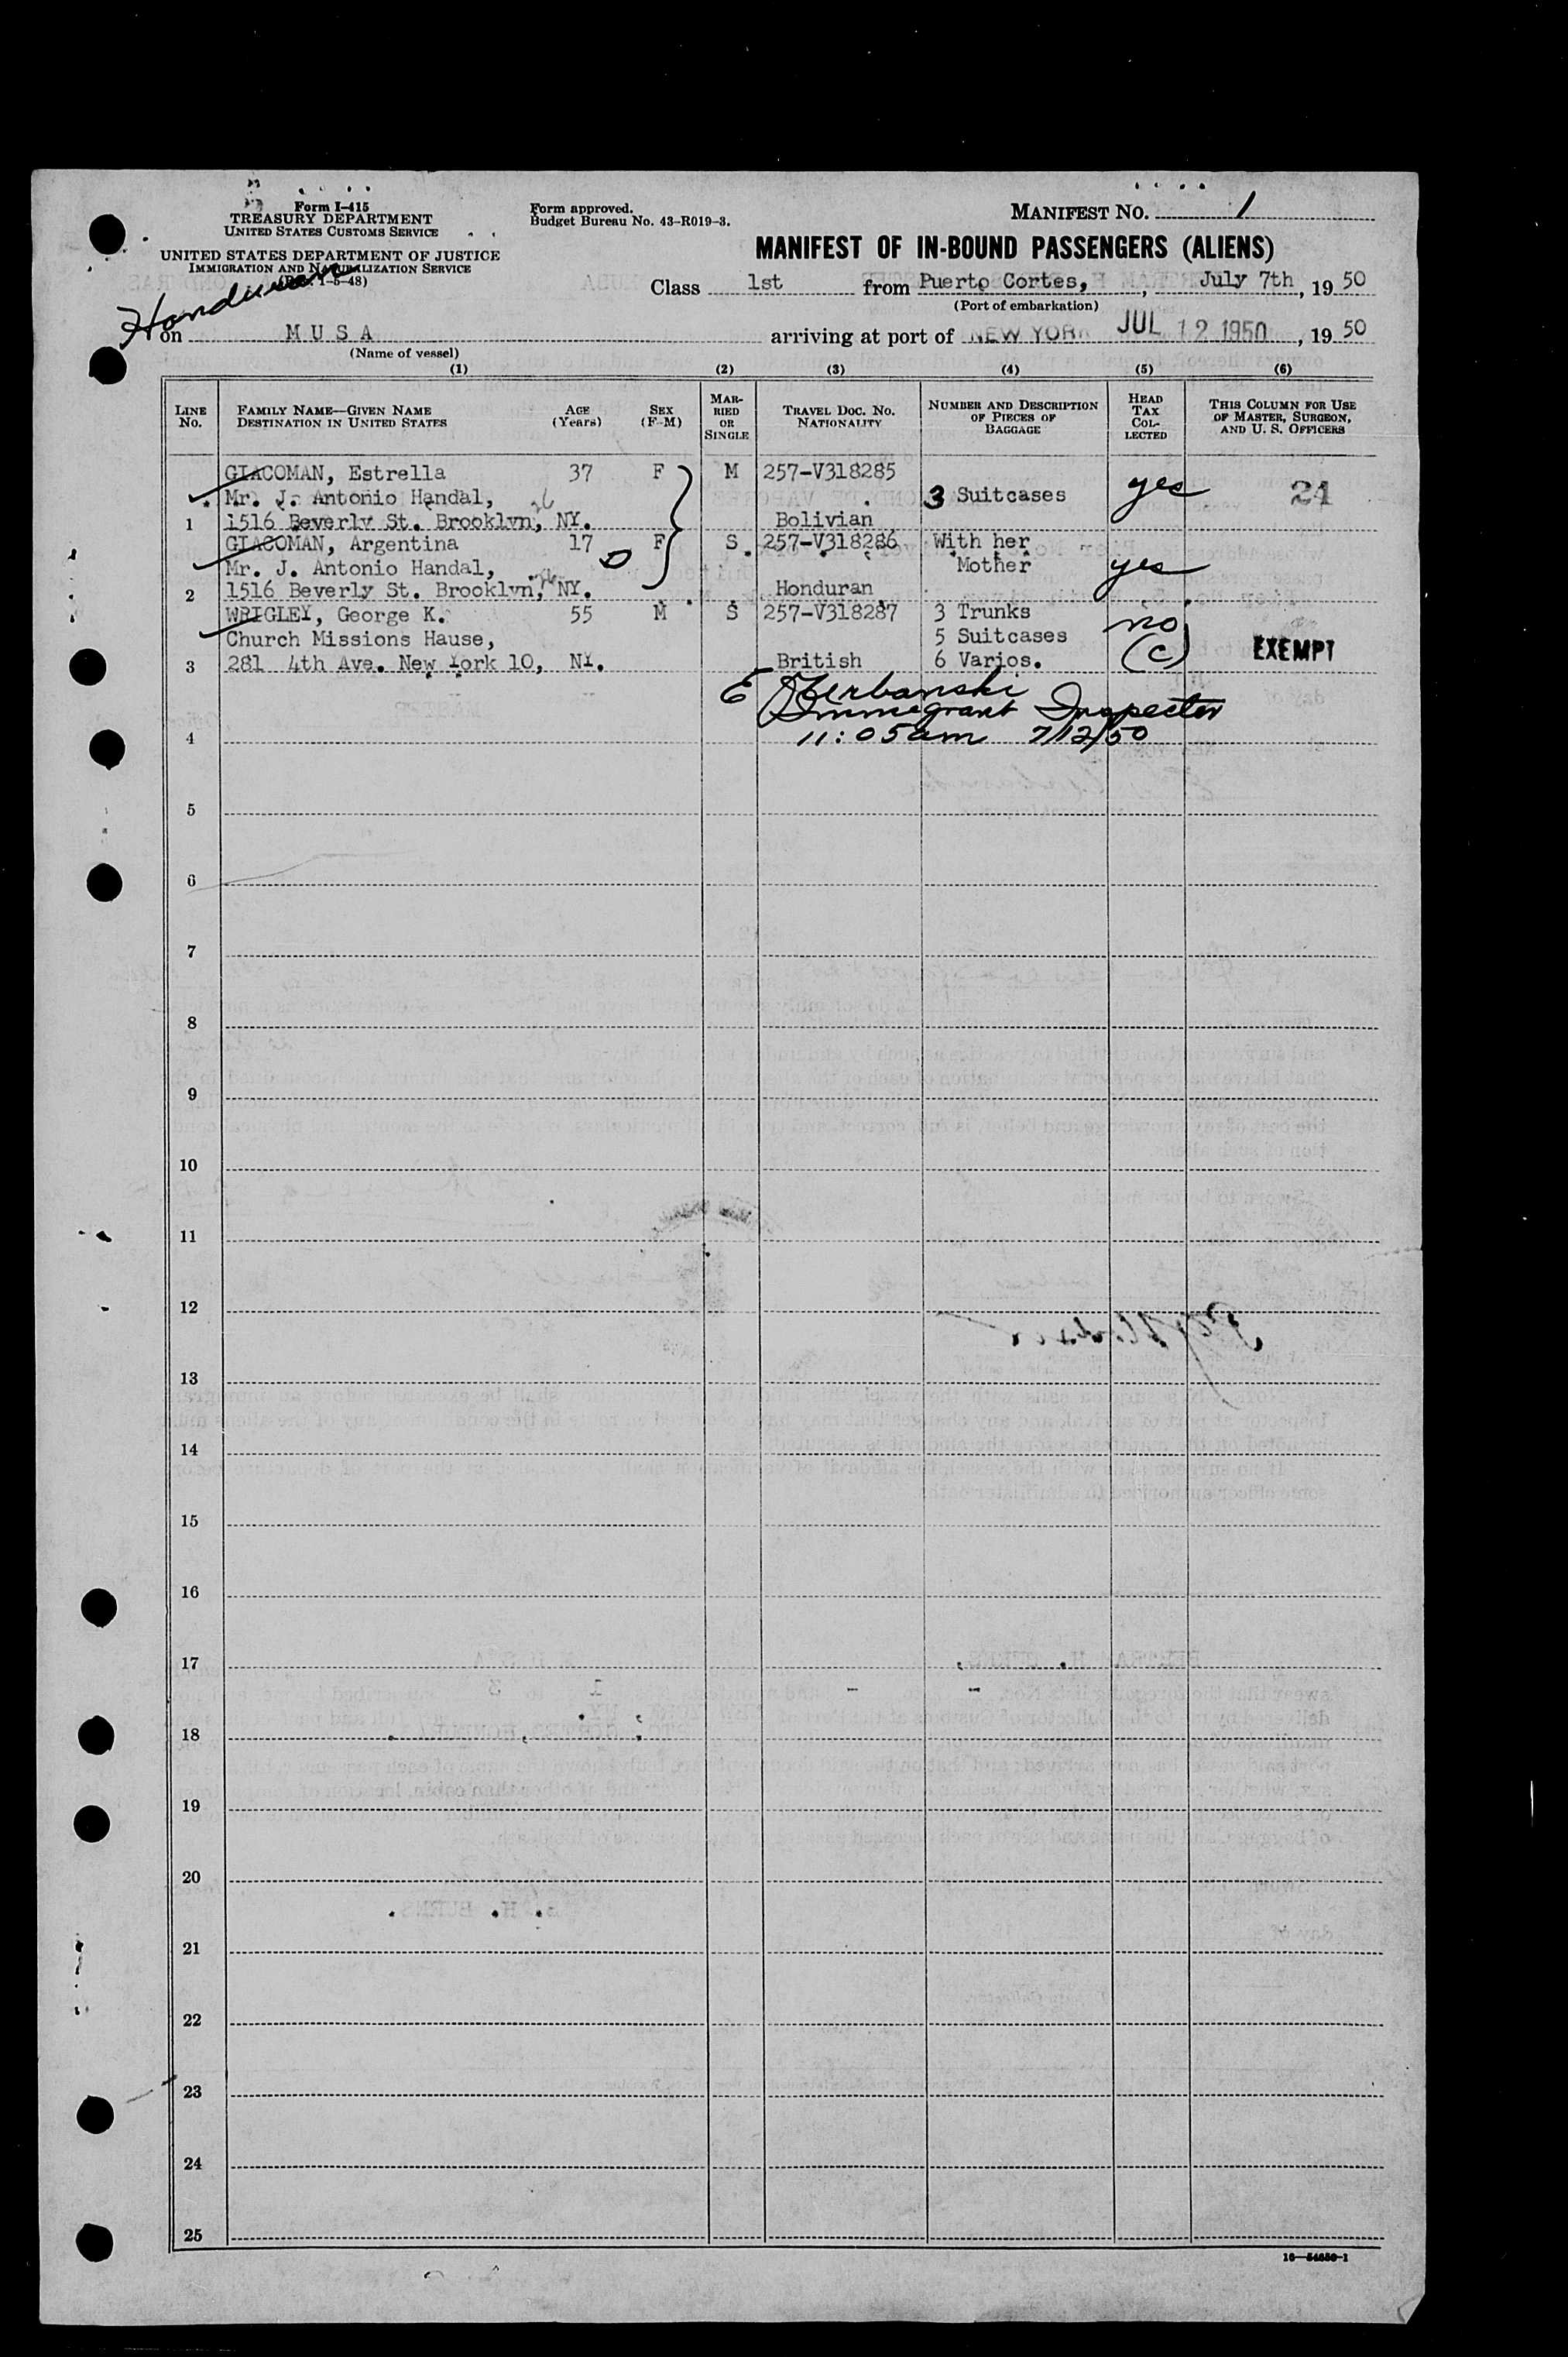 Form I-415
TREASURY DEPARTMENT
UNITED STATES CUSTOMS SERVICE
UNITED STATES DEPARTMENT OF JUSTICE
IMMIGRATION AND NATURALIZATION SERVICE
1-5-48)
Form approved.
Budget Bureau No. 43-R019-3.
MANIFEST NO. 1
MANIFEST OF IN-BOUND PASSENGERS (ALIENS)
Honduran
Class 1st from Puerto Cortes, , July 7th, 19 50
(Port of embarkation)
on M U S A arriving at port of NEW YORK JUL 12 1950, 19 50
(Name of vessel)
(1) (2) (3) (4) (5) (6)
LINE No. FAMILY NAME—GIVEN NAME DESTINATION IN UNITED STATES AGE (Years) SEX (F-M) MARRIED OR SINGLE TRAVEL DOC. NO. NATIONALITY NUMBER AND DESCRIPTION OF PIECES OF BAGGAGE HEAD TAX COLLECTED THIS COLUMN FOR USE OF MASTER, SURGEON, AND U. S. OFFICERS
GIACOMAN, Estrella 37 F M 257-V318285
Mr. J. Antonio Handal, 3 Suitcases yes 24
1 1516 Beverly St. Brooklyn, NY. Bolivian
GIACOMAN, Argentina 17 F S 257-V318286 With her
Mr. J. Antonio Handal, Mother yes
2 1516 Beverly St. Brooklyn, NY. Honduran
WRIGLEY, George K. 55 M S 257-V318287 3 Trunks no
Church Missions Hause, 5 Suitcases
3 281 4th Ave. New York 10, NY. British 6 Varios. (C) EXEMPT
Immigrant Inspector
4 11:05am 7/12/50
5
6
7
8
9
10
11
12
13
14
15
16
17
18
19
20
21
22
23
24
25
16—54650-1